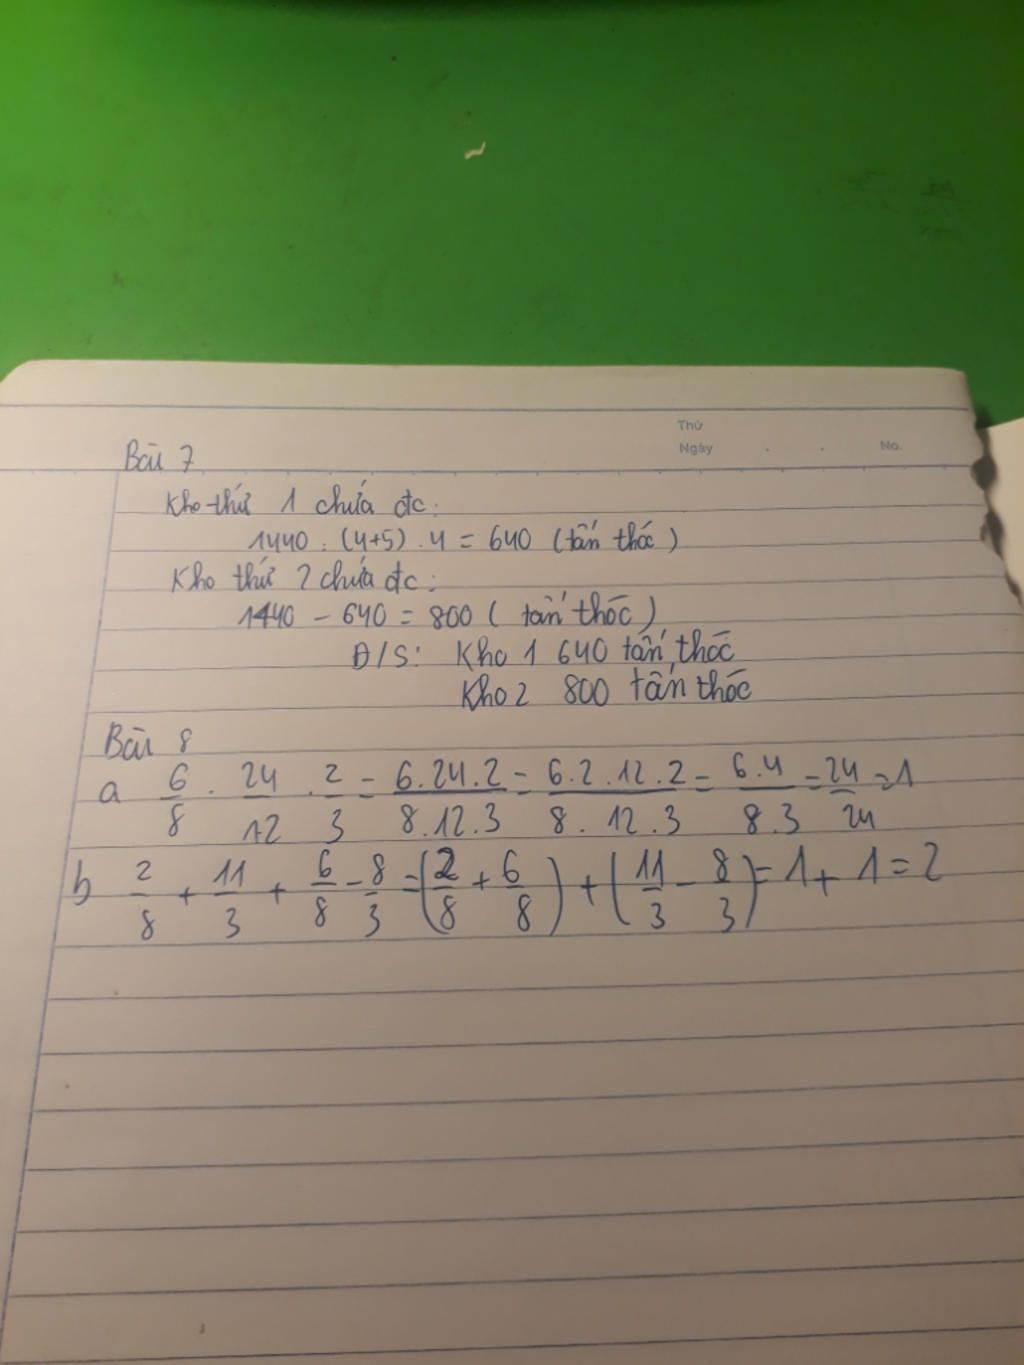 Thứ
Ngày . . No.
Bài 7
Kho thứ 1 chứa đc:
1440 : (4+5) . 4 = 640 (tấn thóc)
Kho thứ 2 chứa đc:
1440 - 640 = 800 (tấn thóc)
Đ/S: Kho 1 640 tấn thóc
Kho 2 800 tấn thóc
Bài 8
a 6/8 . 24/12 . 2/3 = 6.24.2/8.12.3 = 6.2.12.2/8.12.3 = 6.4/8.3 = 24/24 = 1
b 2/8 + 11/3 + 6/8 - 8/3 = (2/8 + 6/8) + (11/3 - 8/3) = 1 + 1 = 2